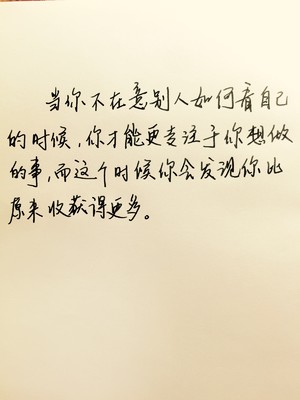 当你不在意别人如何看自己
的时候,你才能更专注于你想做
的事,而这个时候你会发现你比
原来收获得更多。